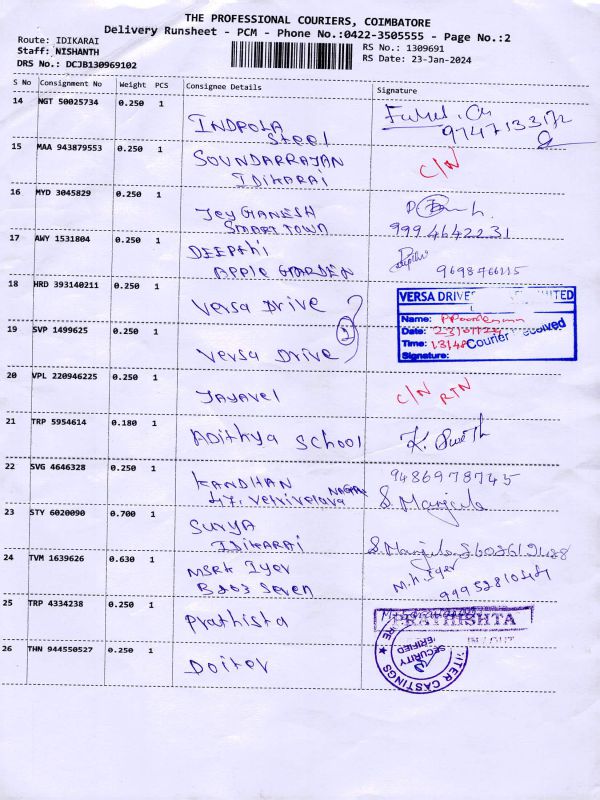 THE PROFESSIONAL COURIERS, COIMBATORE
Delivery Runsheet - PCM - Phone No.:0422-3505555 - Page No.:2
Route: IDIKARAI
RS No.: 1309691
Staff: NISHANTH
RS Date: 23-Jan-2024
DRS No.: DCJB130969102
S No Consignment No Weight PCS Consignee Details Signature
14 NGT 50025734 0.250 1
INDPOLA
Steel
9747133172
15 MAA 943879553 0.250 1
SOUNDARRAJAN
IDIKARAI
C/N
16 MYD 3045829 0.250 1
Jey GANESH
SMART TOWN
999 46422231
17 AWY 1531804 0.250 1
DEEPthi
APPLE GARDEN
9698466115
18 HRD 393140211 0.250 1
Versa Drive
VERSA DRIVES LIMITED
Name:
Date: 23/01/24
Time: 13:40
Courier Received
Signature:
19 SVP 1499625 0.250 1
Versa Drive
2
20 VPL 220946225 0.250 1
Jayavel
C/N RTN
21 TRP 5954614 0.180 1
Adithya School
22 SVG 4646328 0.250 1
KANDHAN
NAGAR
47, Vetrivelava
9486978745
S. Manjula
23 STY 6020090 0.700 1
SURYA
IDIKARAI
S. Manjula
24 TVM 1639626 0.630 1
MSRK Iyer
B203 Seven
M.R. Iyer
25 TRP 4334238 0.250 1
Prathista
PRATHISHTA
IN/OUT
26 THN 944550527 0.250 1
Doiter
SECURITY
VERIFIED
ITER CASTINGS